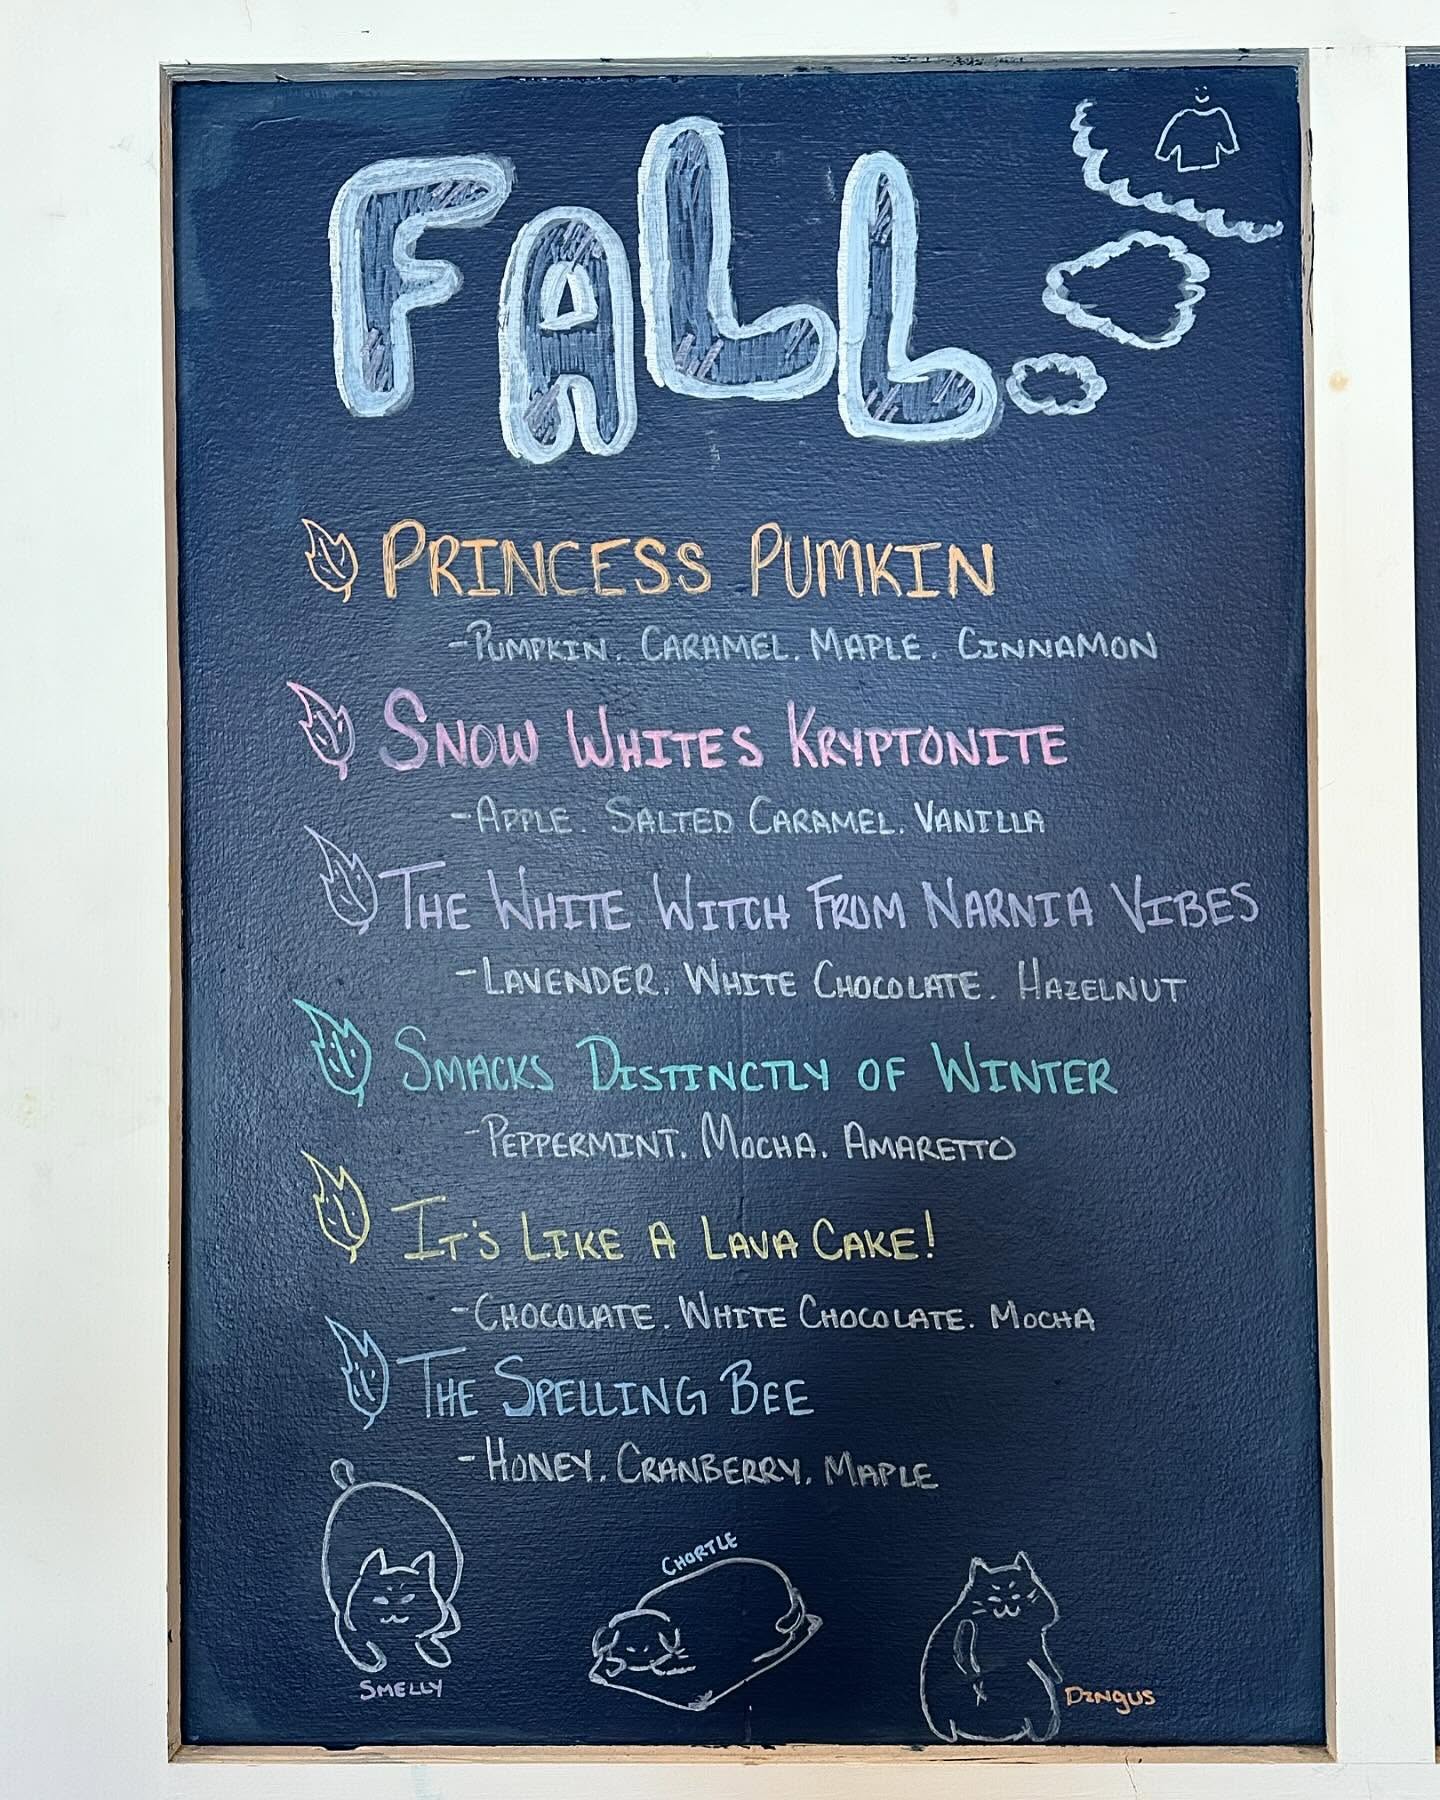 FALL
PRINCESS PUMKIN
-PUMPKIN. CARAMEL. MAPLE. CINNAMON
SNOW WHITES KRYPTONITE
-APPLE. SALTED CARAMEL. VANILLA
THE WHITE WITCH FROM NARNIA VIBES
-LAVENDER. WHITE CHOCOLATE. HAZELNUT
SMACKS DISTINCTLY OF WINTER
-PEPPERMINT. MOCHA. AMARETTO
IT'S LIKE A LAVA CAKE!
-CHOCOLATE. WHITE CHOCOLATE. MOCHA
THE SPELLING BEE
-HONEY. CRANBERRY. MAPLE
CHORTLE
SMELLY
DINGUS